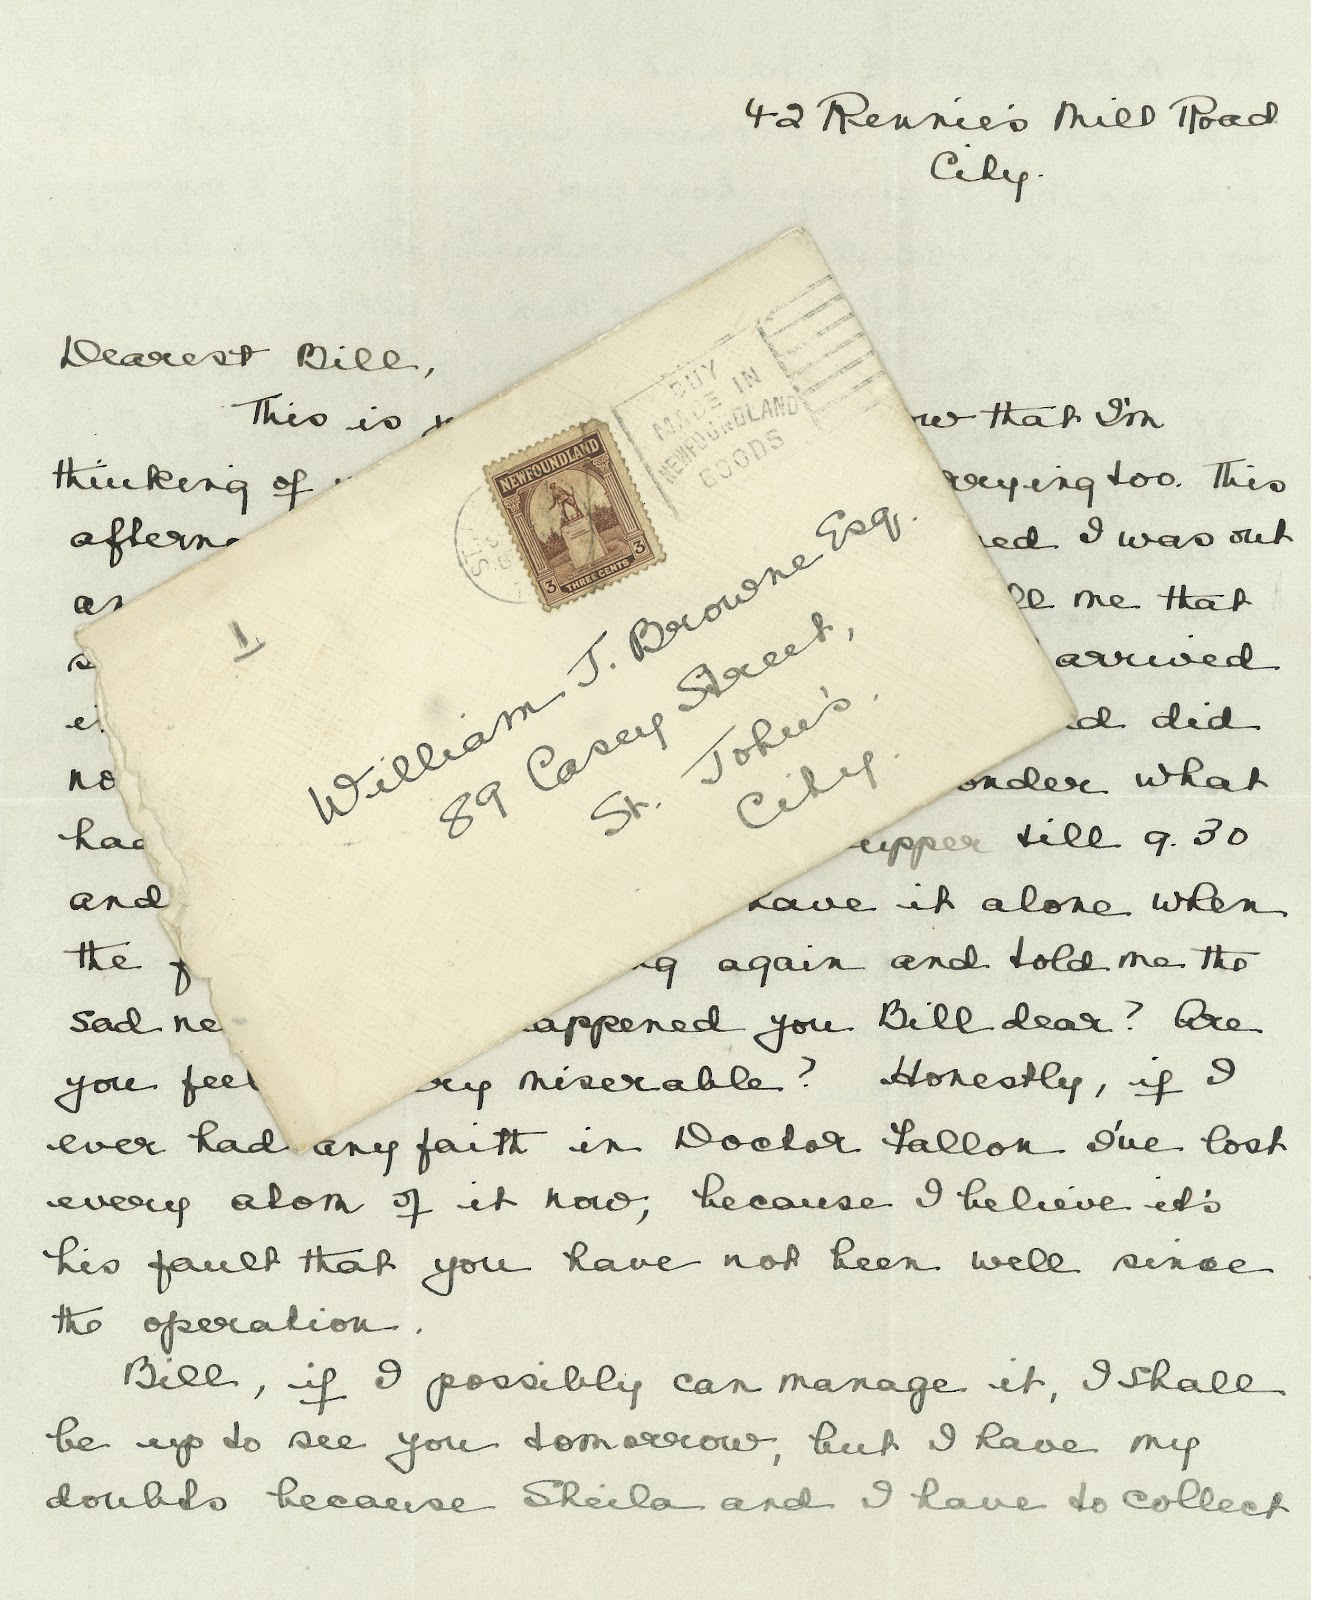 42 Rennie's Mill Road
City.
Dearest Bill,
This is
that I'm
thinking of
too. This
I was out
me that
arrived
did
what
till 9.30
and
have it alone when
the
again and told me the
sad
happened you Bill dear? Are
you feel
miserable? Honestly, if I
ever had any faith in Doctor Fallon I've lost
every atom of it now, because I believe it's
his fault that you have not been well since
the operation.
Bill, if I possibly can manage it, I shall
be up to see you tomorrow, but I have my
doubts because Sheila and I have to collect
1
NEWFOUNDLAND
3 THREE CENTS 3
BUY
MADE IN
NEWFOUNDLAND
GOODS
William J. Browne Esq.
89 Casey Street,
St. John's.
City.